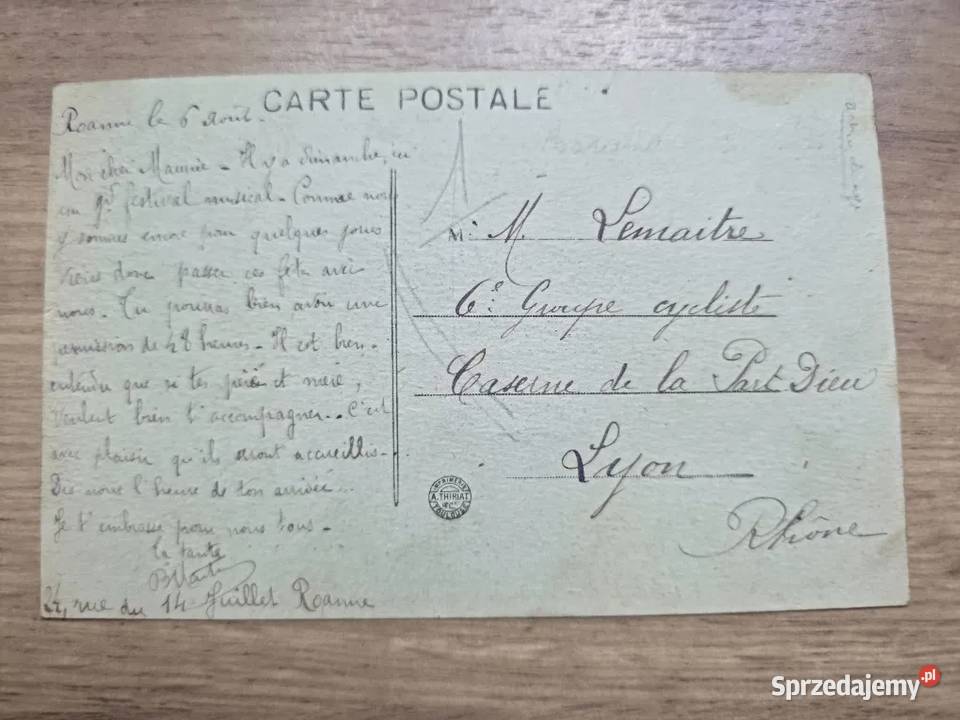 CARTE POSTALE
Roanne le 6 Août.
Mon cher Maurice - Il y a dimanche, ici
un gd festival musical - Comme nous
y sommes encore pour quelques jours
viens donc passer ces fêtes avec
nous. - Tu pourras bien avoir une
permission de 48 heures - Il est bien
entendu que si tes père et mère,
veulent bien t'accompagner - C'est
avec plaisir qu'ils seront accueillis -
Dis nous l'heure de ton arrivée...
Je t'embrasse pour nous tous -
ta tante
24, rue du 14 Juillet Roanne
M. Lemaitre
6e Groupe cycliste
Caserne de la Part Dieu
Lyon
Rhône
IMPRIMERIE
A. THIRIAT
TOULOUSE
Sprzedajemy.pl